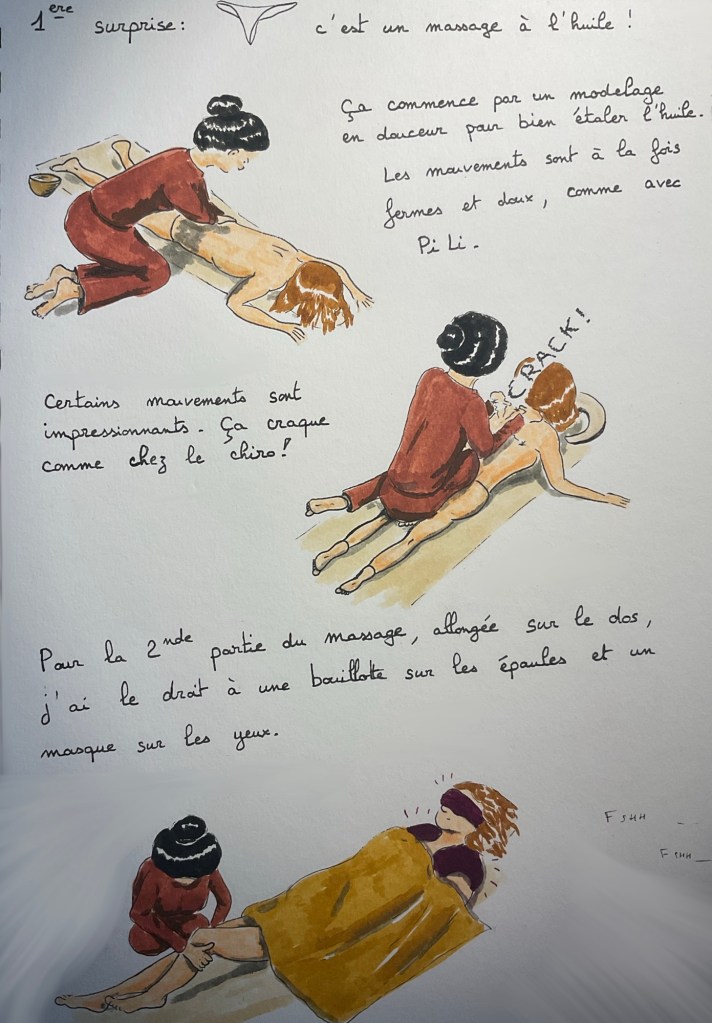 1ere surprise: c'est un massage à l'huile !
Ça commence par un modelage
en douceur pour bien étaler l'huile.
Les mouvements sont à la fois
fermes et doux, comme avec
Pi Li.
CRACK!
Certains mouvements sont
impressionnants. Ça craque
comme chez le chiro!
Pour la 2nde partie du massage, allongée sur le dos,
j'ai le droit à une bouillotte sur les épaules et un
masque sur les yeux.
FSHH
FSHH